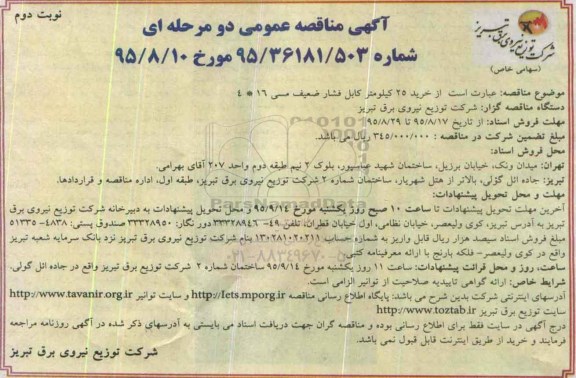 نوبت دوم
آگهی مناقصه عمومی دو مرحله ای
شماره ۹۵/۳۶۱۸۱/۵۰۳ مورخ ۹۵/۸/۱۰
شرکت توزیع نیروی برق تبریز
(سهامی خاص)
موضوع مناقصه: عبارت است از خرید ۲۵ کیلومتر کابل فشار ضعیف مسی ۱۶ * ۴
دستگاه مناقصه گزار: شرکت توزیع نیروی برق تبریز
مهلت فروش اسناد: از تاریخ ۹۵/۸/۱۷ تا ۹۵/۸/۲۹
مبلغ تضمین شرکت در مناقصه : ۳۴۵/۰۰۰/۰۰۰ ریال می باشد.
محل فروش اسناد:
تهران: میدان ونک، خیابان برزیل، ساختمان شهید عباسپور، بلوک ۲ نیم طبقه دوم واحد ۲۰۷ آقای بهرامی.
تبریز: جاده ائل گؤلی، بالاتر از هتل شهریار، ساختمان شماره ۲ شرکت توزیع نیروی برق تبریز، طبقه اول، اداره مناقصه و قراردادها.
مهلت و محل تحویل پیشنهادات:
آخرین مهلت تحویل پیشنهادات تا ساعت ۱۰ صبح روز یکشنبه مورخ ۹۵/۹/۱۴ و محل تحویل پیشنهادات به دبیرخانه شرکت توزیع نیروی برق
تبریز به آدرس تبریز، کوی ولیعصر، خیابان نظامی، اول خیابان قطران، تلفن ۴۹- ۳۳۳۲۸۹۴۶ دور نگار: ۳۳۳۲۸۹۵۰ صندوق پستی: ۴۸۳۸ - ۵۱۳۳۵
مبلغ فروش اسناد سیصد هزار ریال قابل واریز به شماره حساب ۱۳۰۲۸۱۰۲۰۲۱۱ بنام شرکت توزیع نیروی برق تبریز نزد بانک سرمایه شعبه تبریز
واقع در کوی ولیعصر- فلکه بارنج با ارائه معرفینامه کتبی
ساعت، روز و محل قرائت پیشنهادات: ساعت ۱۱ روز یکشنبه مورخ ۹۵/۹/۱۴ ساختمان شماره ۲ شرکت توزیع برق تبریز واقع در جاده ائل گولی.
شرایط خاص: ارائه گواهی تاییدیه صلاحیت از توانیر الزامی است.
آدرسهای اینترنتی شرکت بدین شرح می باشد: پایگاه اطلاع رسانی مناقصه http://Iets.mporg.ir و سایت توانیر http://www.tavanir.org.ir
سایت توزیع برق تبریز http://www.toztab.ir
درج آگهی در سایت فقط برای اطلاع رسانی بوده و مناقصه گران جهت دریافت اسناد می بایستی به آدرسهای ذکر شده در آگهی روزنامه مراجعه
فرمایند و خرید از طریق اینترنت قابل قبول نمی باشد.
شرکت توزیع نیروی برق تبریز